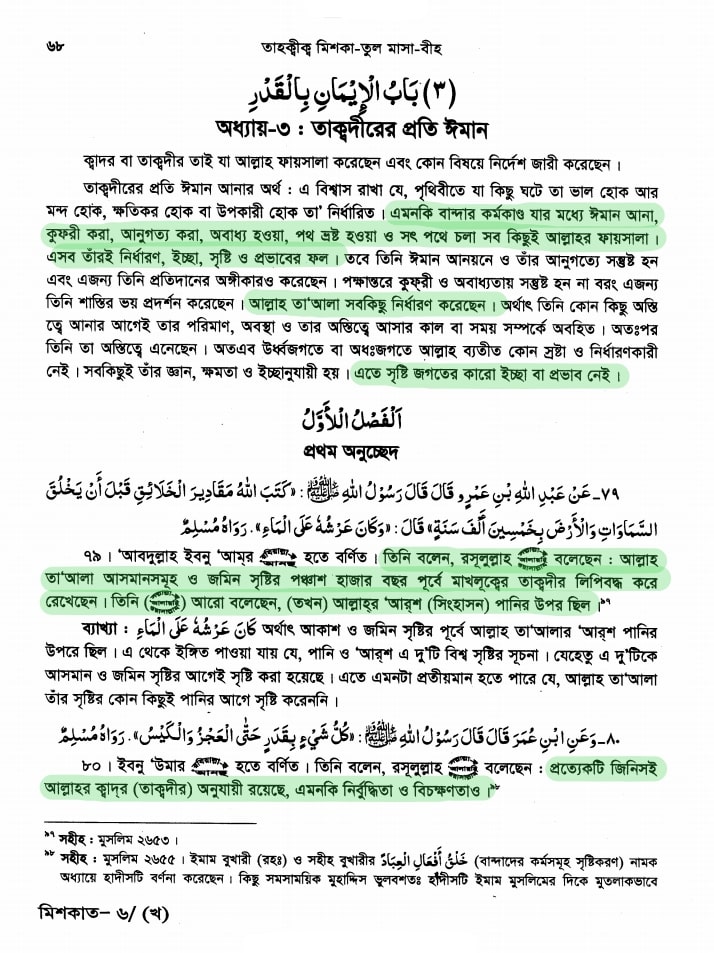 ৬৮ তাহক্বীক্ব মিশকা-তুল মাসা-বীহ
(٣) بَابُ الْإِيْمَانِ بِالْقَدْرِ
অধ্যায়-৩ : তাক্বদীরের প্রতি ঈমান
ক্বাদর বা তাক্বদীর তাই যা আল্লাহ ফায়সালা করেছেন এবং কোন বিষয়ে নির্দেশ জারী করেছেন।
তাক্বদীরের প্রতি ঈমান আনার অর্থ : এ বিশ্বাস রাখা যে, পৃথিবীতে যা কিছু ঘটে তা ভাল হোক আর
মন্দ হোক, ক্ষতিকর হোক বা উপকারী হোক তা' নির্ধারিত। এমনকি বান্দার কর্মকাণ্ড যার মধ্যে ঈমান আনা,
কুফরী করা, আনুগত্য করা, অবাধ্য হওয়া, পথ ভ্রষ্ট হওয়া ও সৎ পথে চলা সব কিছুই আল্লাহর ফায়সালা।
এসব তাঁরই নির্ধারণ, ইচ্ছা, সৃষ্টি ও প্রভাবের ফল। তবে তিনি ঈমান আনয়নে ও তাঁর আনুগত্যে সন্তুষ্ট হন
এবং এজন্য তিনি প্রতিদানের অঙ্গীকারও করেছেন। পক্ষান্তরে কুফ্‌রী ও অবাধ্যতায় সন্তুষ্ট হন না বরং এজন্য
তিনি শাস্তির ভয় প্রদর্শন করেছেন। আল্লাহ তা'আলা সবকিছু নির্ধারণ করেছেন। অর্থাৎ তিনি কোন কিছু অস্তি
ত্বে আনার আগেই তার পরিমাণ, অবস্থা ও তার অস্তিত্বে আসার কাল বা সময় সম্পর্কে অবহিত। অতঃপর
তিনি তা অস্তিত্বে এনেছেন। অতএব উর্ধ্বজগতে বা অধঃজগতে আল্লাহ ব্যতীত কোন স্রষ্টা ও নির্ধারণকারী
নেই। সবকিছুই তাঁর জ্ঞান, ক্ষমতা ও ইচ্ছানুযায়ী হয়। এতে সৃষ্টি জগতের কারো ইচ্ছা বা প্রভাব নেই।
اَلْفَصْلُ الْأَوَّلُ
প্রথম অনুচ্ছেদ
٧٩ـ عَنْ عَبْدِ اللهِ بْنِ عَمْرٍو قَالَ قَالَ رَسُوْلُ اللهِ ﷺ: «كَتَبَ اللهُ مَقَادِيرَ الْخَلَائِقِ قَبْلَ أَنْ يَخْلُقَ
السَّمَاوَاتِ وَالْأَرْضَ بِخَمْسِينَ أَلْفَ سَنَةٍ» قَالَ: «وَكَانَ عَرْشُهٗ عَلَى الْمَاءِ». رَوَاهُ مُسْلِمٌ
৭৯। 'আবদুল্লাহ ইবনু 'আম্‌র হতে বর্ণিত। তিনি বলেন, রসূলুল্লাহ বলেছেন : আল্লাহ
তা'আলা আসমানসমূহ ও জমিন সৃষ্টির পঞ্চাশ হাজার বছর পূর্বে মাখলূক্বের তাক্বদীর লিপিবদ্ধ করে
রেখেছেন। তিনি () আরো বলেছেন, (তখন) আল্লাহর 'আর্‌শ (সিংহাসন) পানির উপর ছিল।৯৭
ব্যাখ্যা : كَانَ عَرْشُهٗ عَلَى الْمَاءِ অর্থাৎ আকাশ ও জমিন সৃষ্টির পূর্বে আল্লাহ তা'আলার 'আর্‌শ পানির
উপরে ছিল। এ থেকে ইঙ্গিত পাওয়া যায় যে, পানি ও 'আর্‌শ এ দু'টি বিশ্ব সৃষ্টির সূচনা। যেহেতু এ দু'টিকে
আসমান ও জমিন সৃষ্টির আগেই সৃষ্টি করা হয়েছে। এতে এমনটা প্রতীয়মান হতে পারে যে, আল্লাহ তা'আলা
তাঁর সৃষ্টির কোন কিছুই পানির আগে সৃষ্টি করেননি।
٨٠ـ وَعَنِ ابْنِ عُمَرَ قَالَ قَالَ رَسُوْلُ اللهِ ﷺ: «كُلُّ شَيْءٍ بِقَدَرٍ حَتَّى الْعَجْزُ وَالْكَيْسُ». رَوَاهُ مُسْلِمٌ
৮০। ইবনু 'উমার হতে বর্ণিত। তিনি বলেন, রসূলুল্লাহ বলেছেন : প্রত্যেকটি জিনিসই
আল্লাহর ক্বাদ্‌র (তাক্বদীর) অনুযায়ী রয়েছে, এমনকি নির্বুদ্ধিতা ও বিচক্ষণতাও।৯৮
৯৭ সহীহ : মুসলিম ২৬৫৩।
৯৮ সহীহ : মুসলিম ২৬৫৫। ইমাম বুখারী (রহঃ) ও সহীহ বুখারীর خَلْقُ أَفْعَالِ الْعِبَادِ (বান্দাদের কর্মসমূহ সৃষ্টিকরণ) নামক
অধ্যায়ে হাদীসটি বর্ণনা করেছেন। কিছু সমসাময়িক মুহাদ্দিস ভুলবশতঃ হাদীসটি ইমাম মুসলিমের দিকে মুতলাকভাবে
মিশকাত– ৬/ (খ)